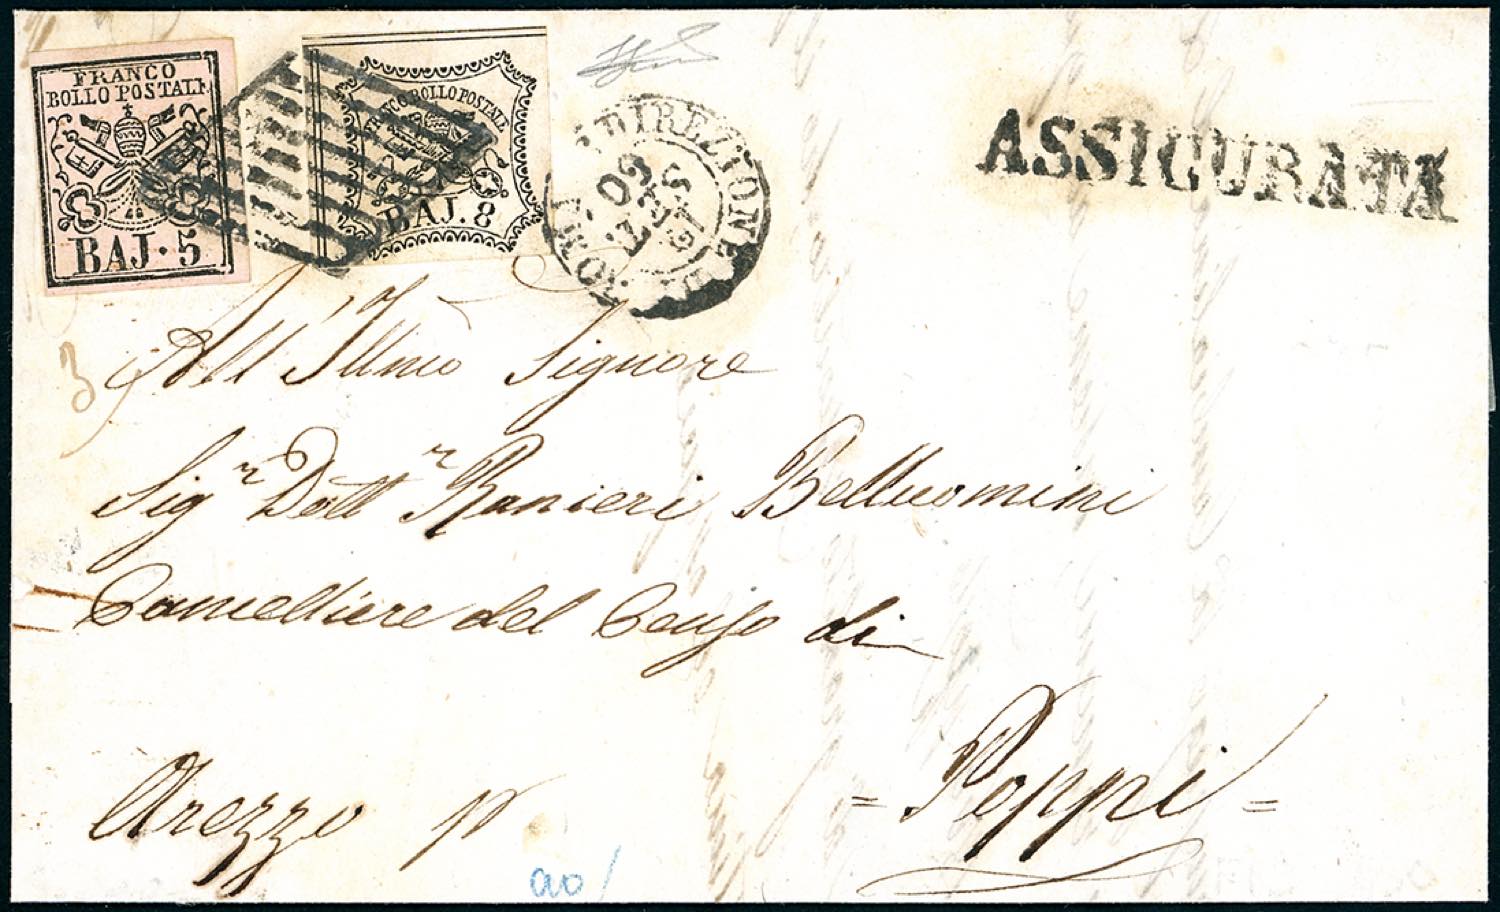 FRANCO
BOLLO POSTALE
BAJ. 5
FRANCO BOLLO POSTALE
BAJ. 8
DIREZIONE DI ROMA
60
ASSICURATA
All'Illmo Signore
Sigr Dottr Ranieri Belluomini
Cancelliere del Censo di
= Poppi =
Arezzo p